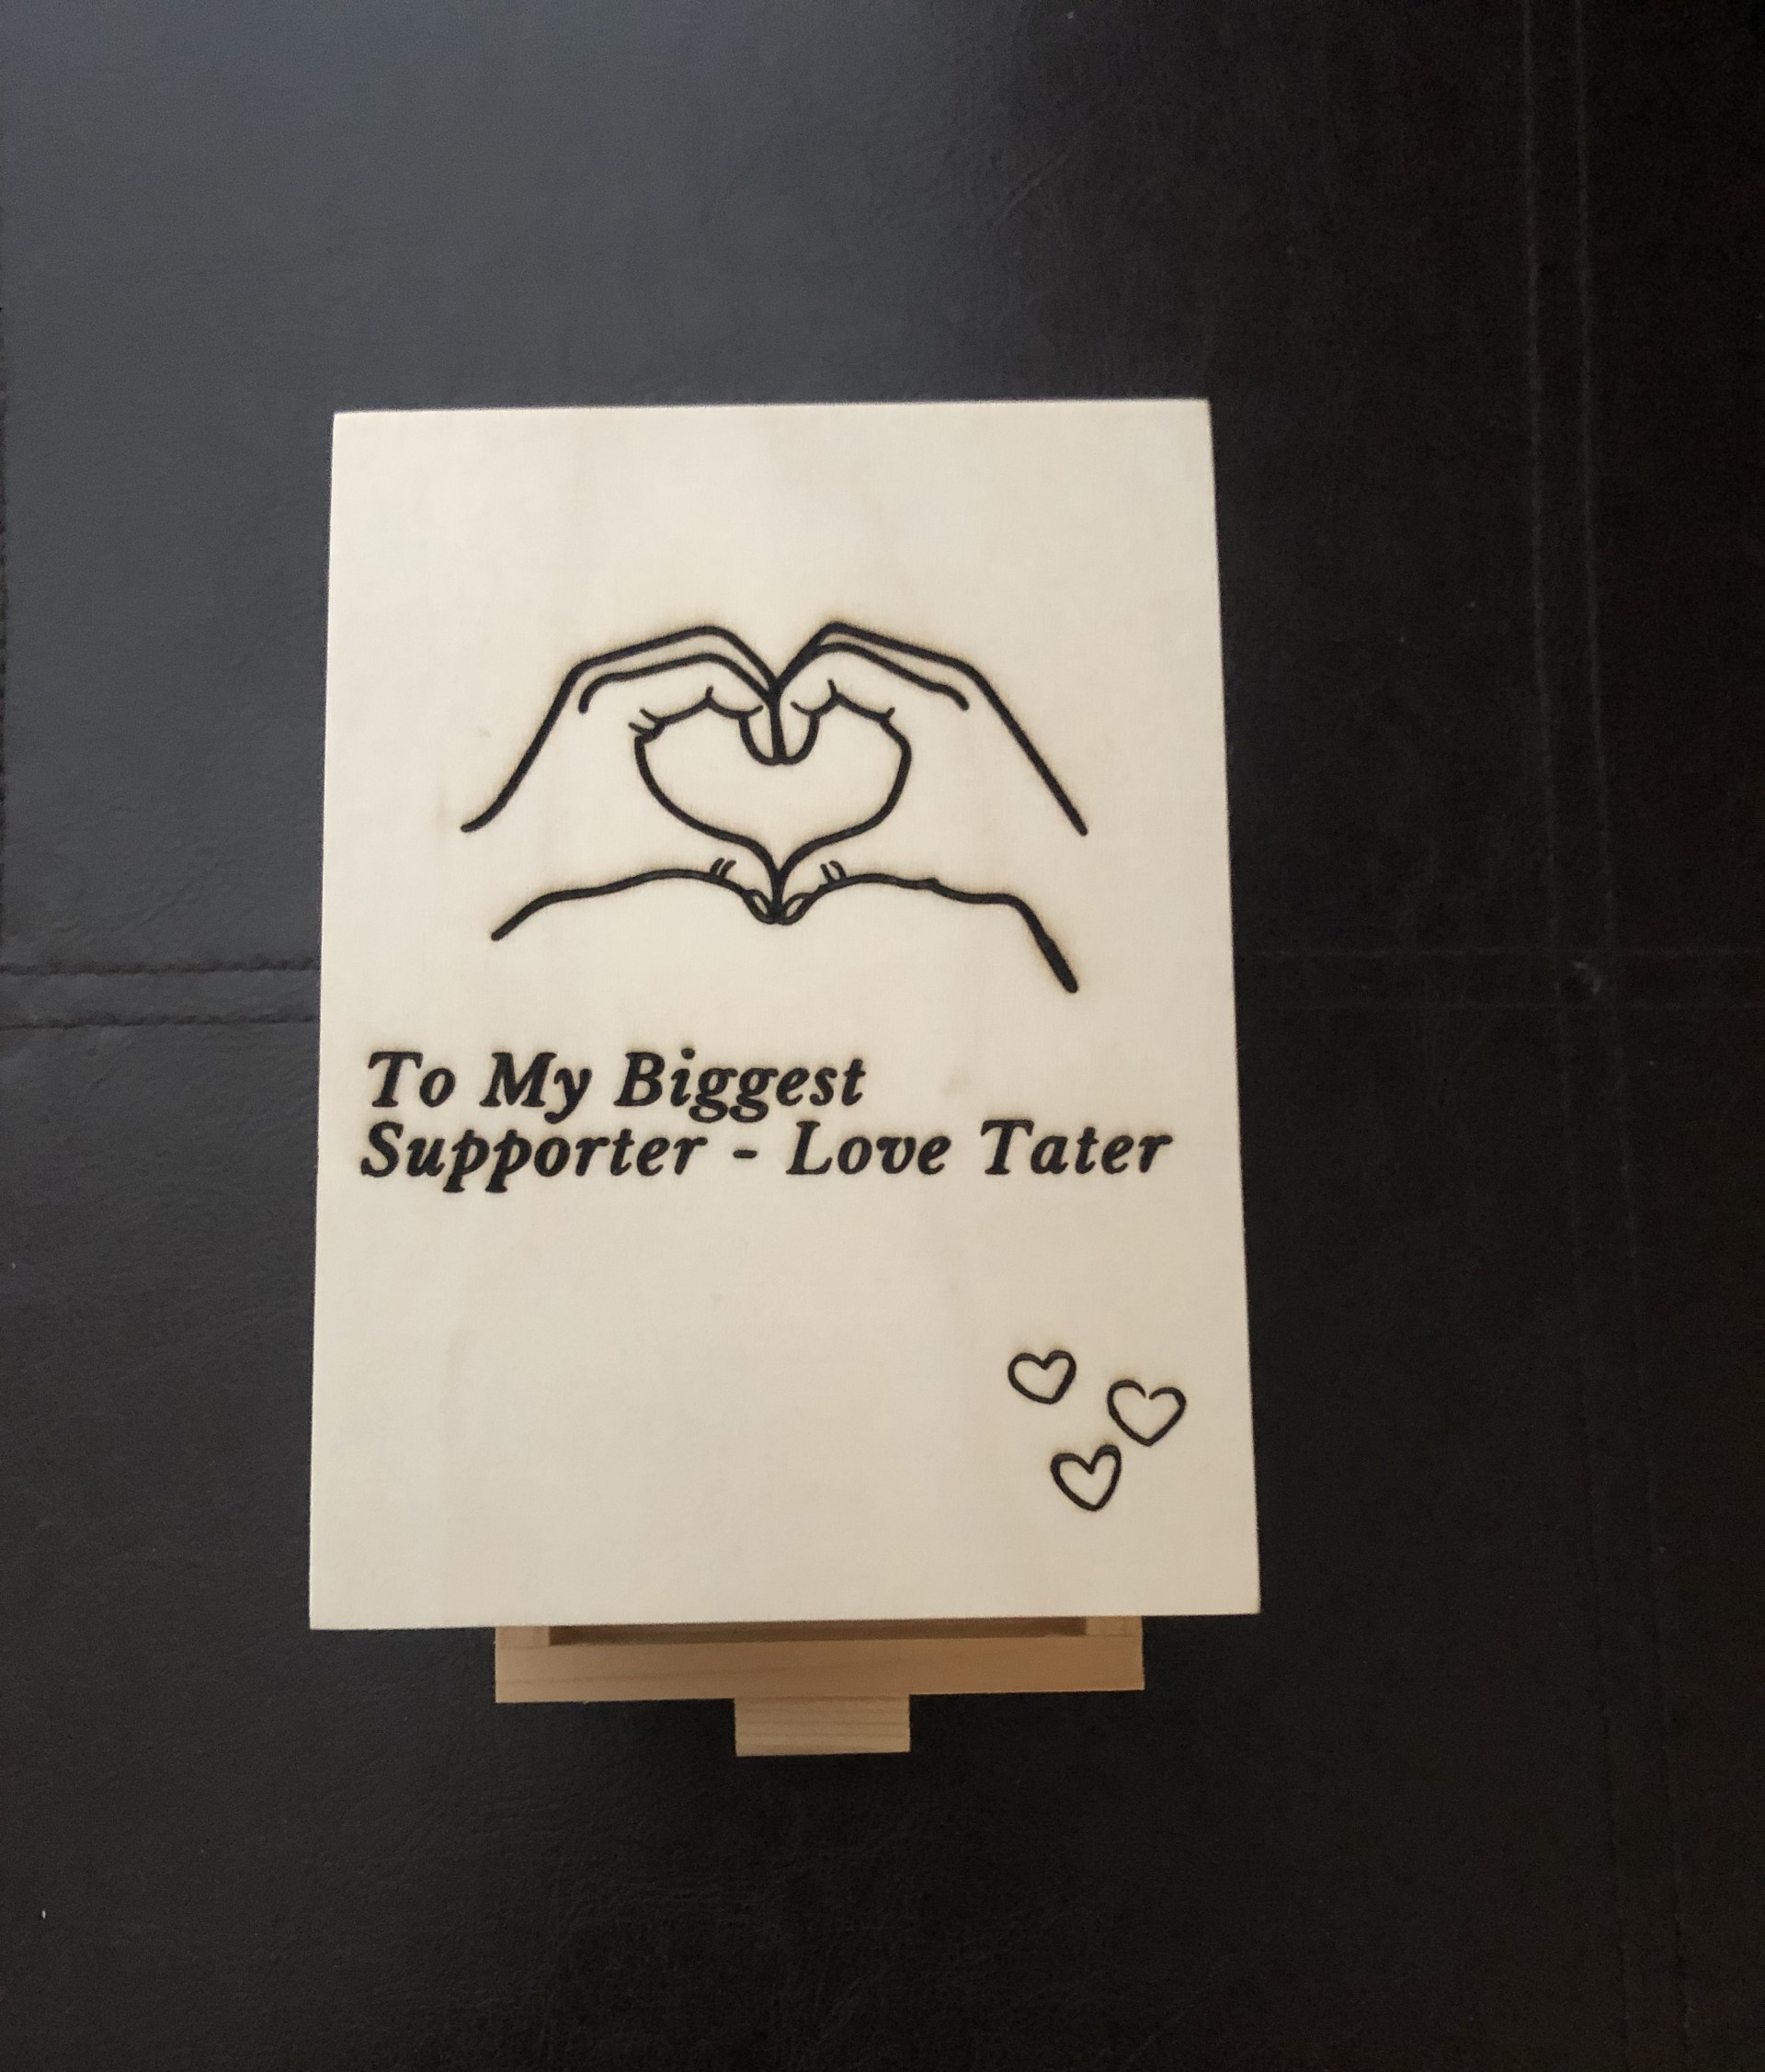 To My Biggest
Supporter - Love Tater